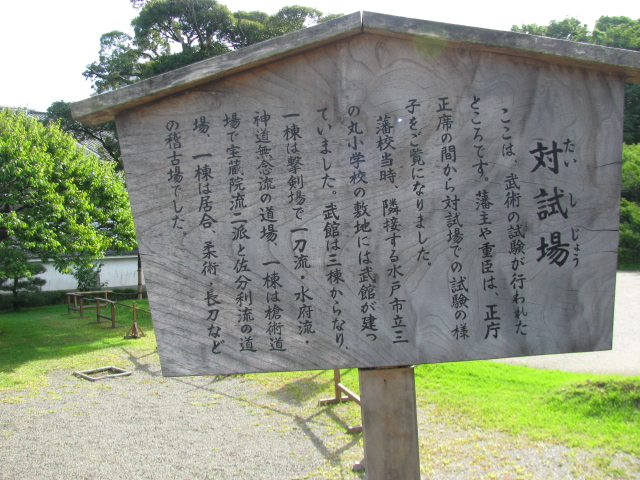 対試場
たいしじょう
ここは、武術の試験が行われた
ところです。藩主や重臣は、正庁
正席の間から対試場での試験の様
子をご覧になりました。
藩校当時、隣接する水戸市立三
の丸小学校の敷地には武館が建っ
ていました。武館は三棟からなり、
一棟は撃剣場で一刀流・水府流・
神道無念流の道場、一棟は槍術道
場で宝蔵院流二派と佐分利流の道
場、一棟は居合、柔術・長刀など
の稽古場でした。